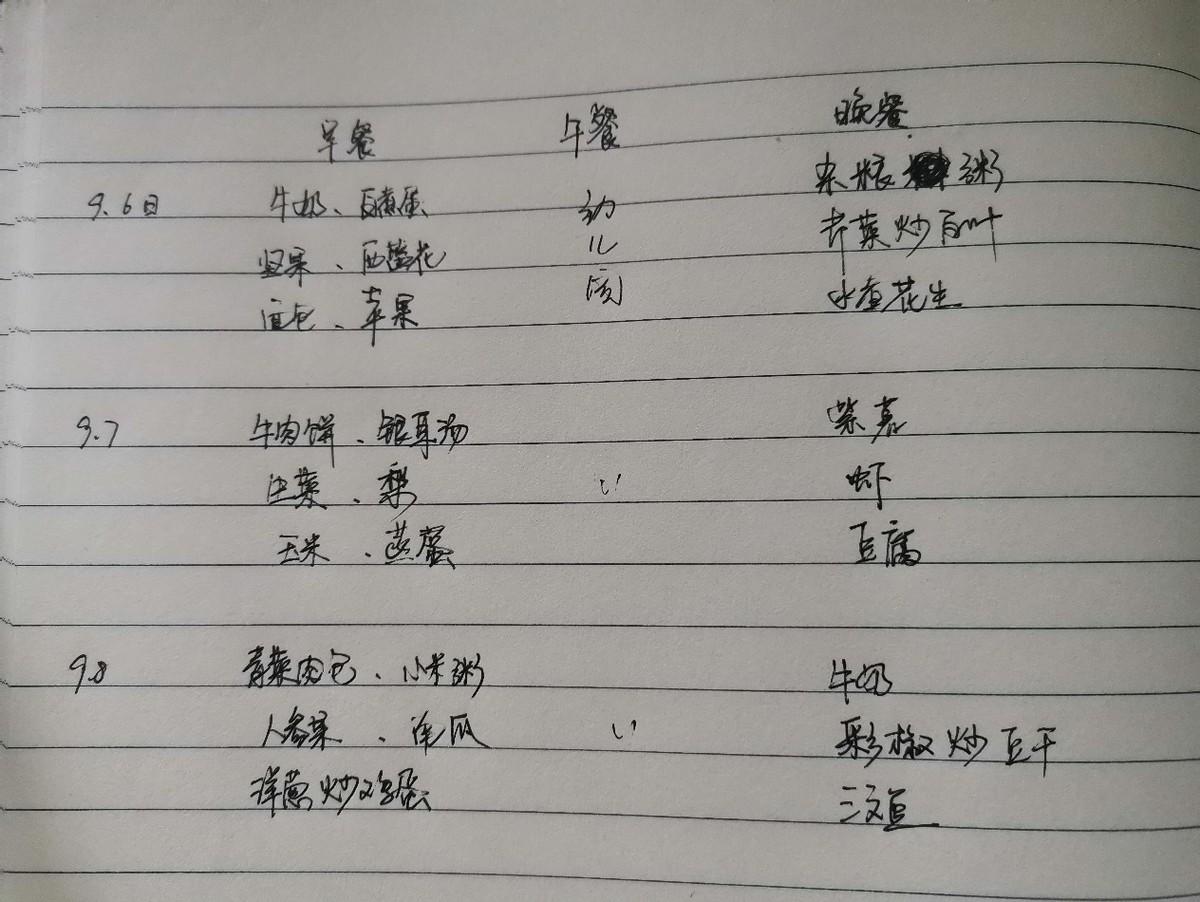 早餐 午餐 晚餐
9.6日 牛奶、白煮蛋 幼 杂粮粥
坚果、西蓝花 儿 芹菜炒百叶
面包、苹果 园 水煮花生
9.7 牛肉饼、银耳汤 紫薯
生菜、梨 〃 虾
玉米、蒸蛋 豆腐
9.8 青菜肉包、小米粥 牛奶
人参菜、香瓜 〃 彩椒炒豆干
洋葱炒鸡蛋